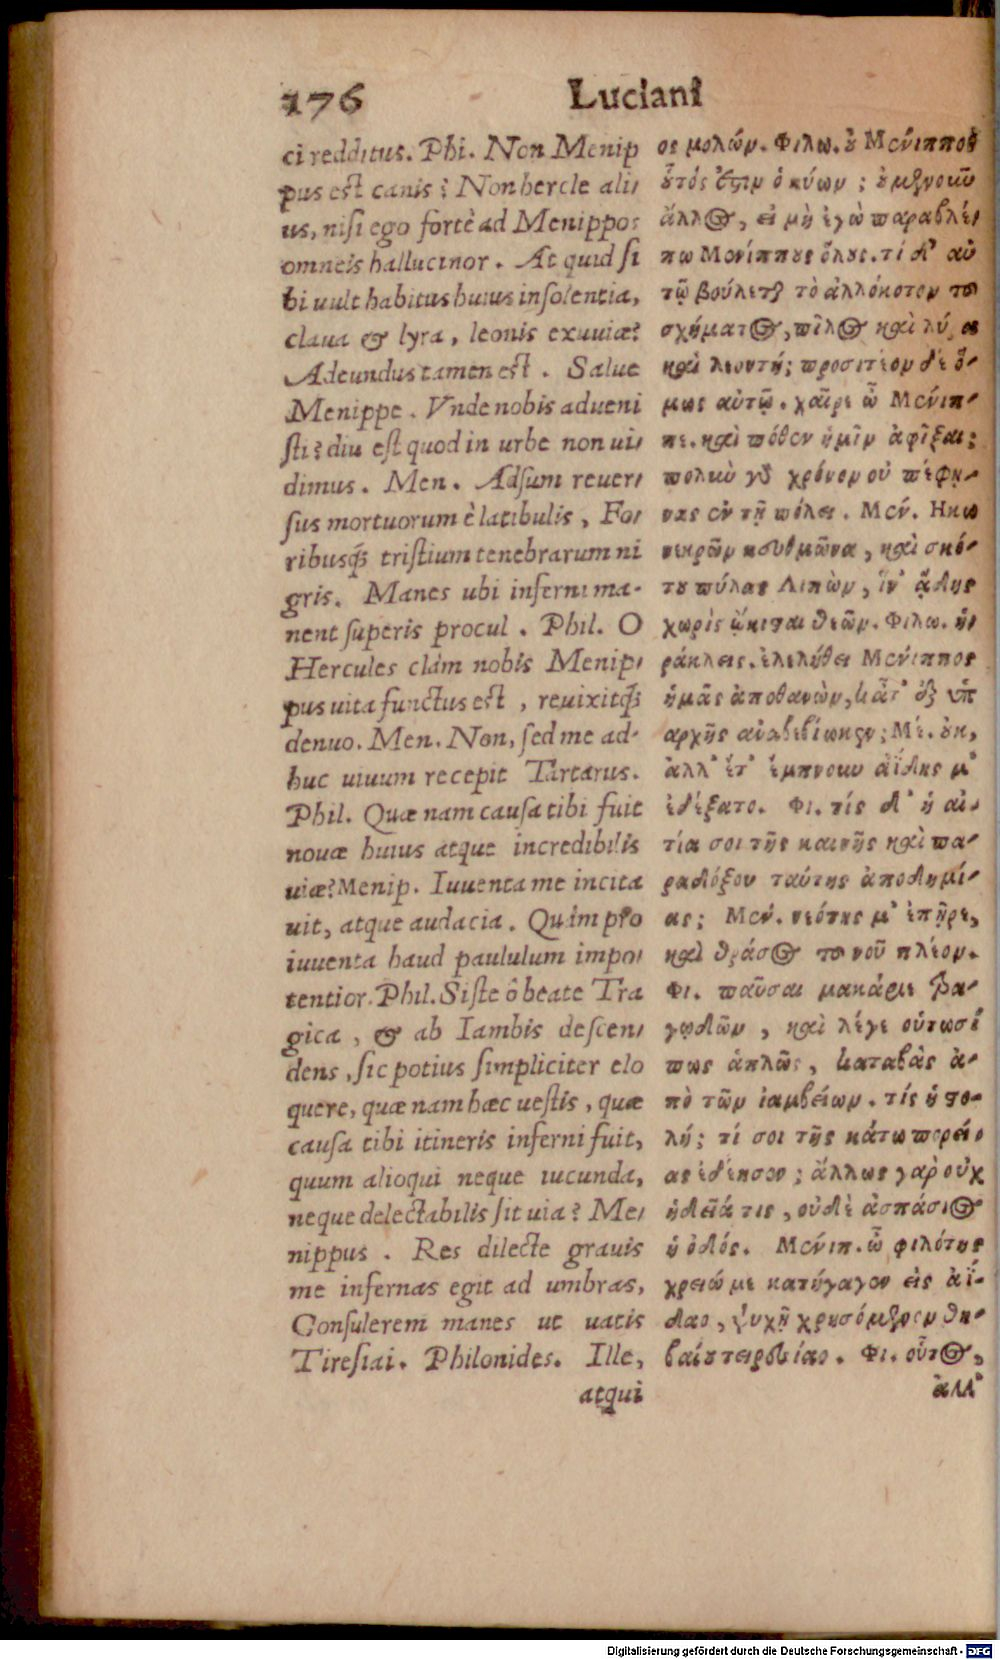 176 Luciani
ci redditus. Phi. Non Menip
pus est canis? Non hercle ali/
us, nisi ego fortè ad Menippos
omneis hallucinor. At quid si
bi uult habitus huius insolentia,
claua & lyra, leonis exuuiæ?
Adeundus tamen est. Salue
Menippe. Vnde nobis adueni
sti? diu est quod in urbe non ui/
dimus. Men. Adsum reuer/
sus mortuorum è latibulis, Fo/
ribusq́; tristium tenebrarum ni
gris. Manes ubi inferni ma-
nent superis procul. Phil. O
Hercules clàm nobis Menip/
pus uita functus est, reuixitq́;
denuo. Men. Non, sed me ad-
huc uiuum recepit Tartarus.
Phil. Quæ nam causa tibi fuit
nouæ huius atque incredibilis
uiæ? Menip. Iuuenta me incita
uit, atque audacia. Quàm pro
iuuenta haud paululum impo/
tentior. Phil. Siste ô beate Tra
gica, & ab Iambis descen/
dens, sic potius simpliciter elo
quere, quæ nam hæc uestis, quæ
causa tibi itineris inferni fuit,
quum alioqui neque iucunda,
neque delectabilis sit uia? Me/
nippus. Res dilecte grauis
me infernas egit ad umbras,
Consulerem manes ut uatis
Tiresiai. Philonides. Ille,
atqui
ος μολών. Φιλω. ȣ Μένιππος
ȣτός ἐστιν ὁ κύων; ȣ μενοιῶ
ἄλλος, εἰ μὴ ἐγὼ παραβλέ/
πω Μενίππους ὅλους. τί δ' αὐ
τῷ βούλεται τὸ ἀλλόκοτον τοῦ
σχήματος, πῖλος καὶ λύρα
καὶ λεοντή; προσιτέον δὲ ὅ-
μως αὐτῷ. χαῖρε ὦ Μένιπ-
πε. καὶ πόθεν ἡμῖν ἀφῖξαι;
πολὺ γὰρ χρόνον οὐ πέφη-
νας ἐν τῇ πόλει. Μέν. Ηκω
νεκρῶν κευθμῶνα, καὶ σκό-
του πύλας Λιπὼν, ἵν' ᾅδης
χωρὶς ᾤκισται θεῶν. Φιλω. ἡ/
ράκλεις. ἐλελήθει Μένιππος
ἡμᾶς ἀποθανὼν, κᾆτ' ἐξ ὑπ
αρχῆς ἀναβεβίωκεν; Μέ. ȣκ,
ἀλλ' ἔτ' ἔμπνουν ἀΐδης μ'
ἐδέξατο. Φι. τίς δ' ἡ αἰ-
τία σοι τῆς καινῆς καὶ πα-
ραδόξου ταύτης ἀποδημί-
ας; Μέν. νεότης μ' ἐπῆρε,
καὶ θράσος τοῦ νοῦ πλέον.
Φι. παῦσαι μακάριε τρα-
γῳδῶν, καὶ λέγε οὑτωσί
πως ἁπλῶς, καταβὰς ἀ-
πὸ τῶν ἰαμβείων. τίς ἡ στο-
λή; τί σοι τῆς κάτω πορεί/
ας ἐδέησεν; ἄλλως γὰρ οὐχ
ἡδεῖά τις, οὐδὲ ἀσπάσιος
ἡ ὁδός. Μένιπ. ὦ φιλότης
χρειώ με κατήγαγεν εἰς ἀΐ-
δαο, ψυχῇ χρησόμενον θη-
βαίου τειρεσίαο. Φι. οὗτος,
ἀλλ'
Digitalisierung gefördert durch die Deutsche Forschungsgemeinschaft - DFG